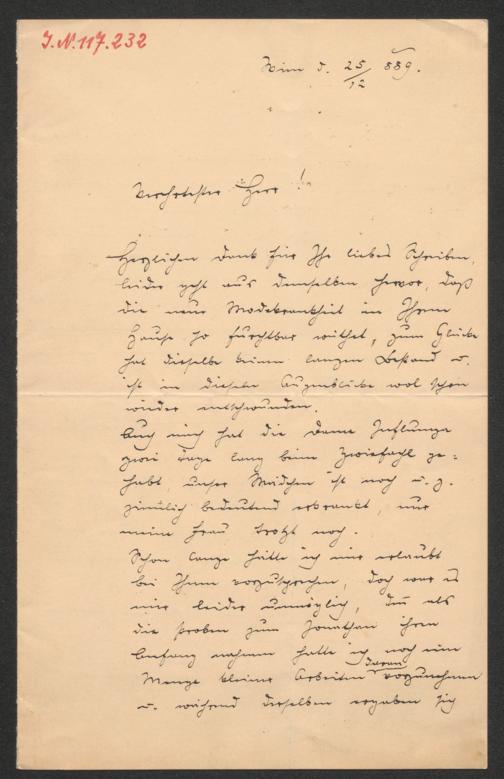 I.N.117.232
Wien d. 25/12 889.
Verehrtester Herr!
Herzlichen Dank für Ihr liebes Schreiben,
leider geht aus demselben hervor, daß
die neue Modekrankheit in Ihrem
Hause so furchtbar wüthet, zum Glücke
hat dieselbe keinen langen Bestand u.
ist in diesem Augenblicke wol schon
wieder entschwunden.
Auch mich hat die Dame Influenza
zwei Tage lang beim Zwiefachl ge=
habt, unser Mädchen ist noch u. z.
ziemlich bedeutend erkrankt, nur
meine Frau trotzt noch.
Schon lange hätte ich mir erlaubt
bei Ihnen vorzusprechen, doch war es
mir leider unmöglich, denn als
die Proben zum Jonathan ihren
Anfang nahmen hatte ich noch eine
Menge kleine Arbeiten daran vorzunehmen
u. während derselben ergaben sich